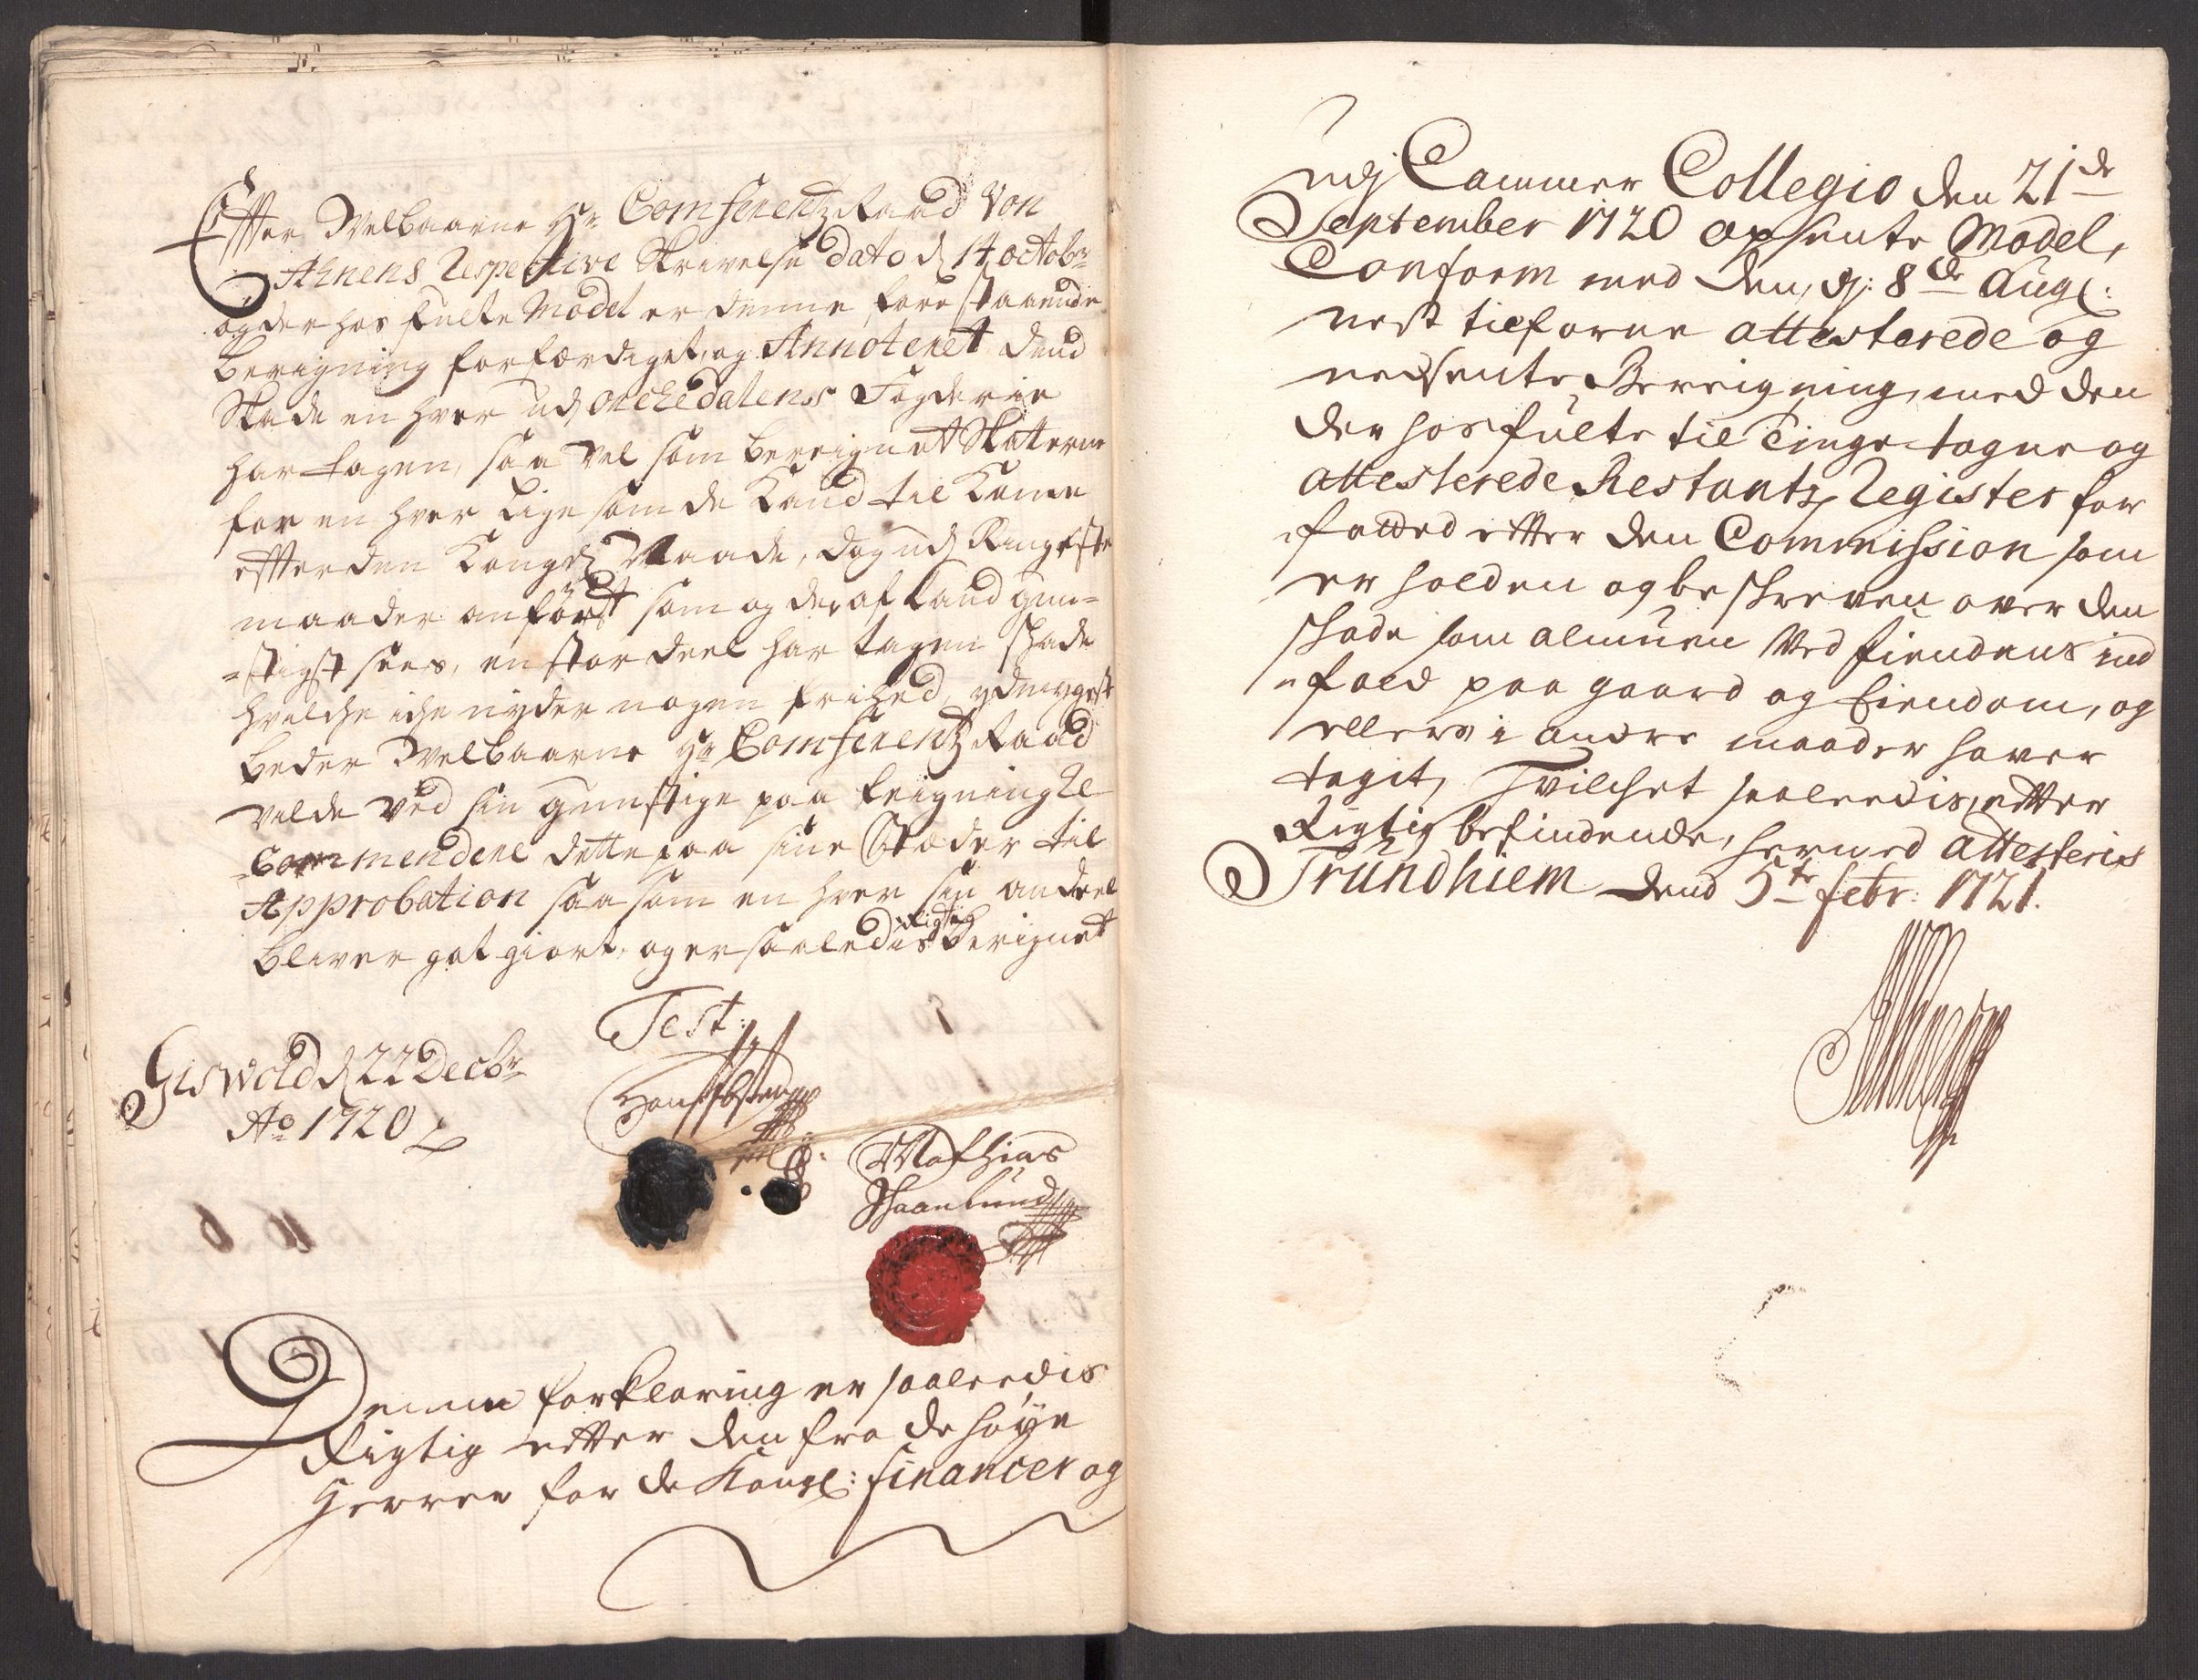 Effter Welbaarne Hr Comferentz Raad Von
Ahnens Respective Skrivelse dato d 14 octobr
og der hos fulte Model er denne forestaaende
berigning forfærdiget, og Annoteret dend
Skade en hver udj Orchedalens Fogderie
har tagen, saa vel som bereignet Skatterne
for en hver lige som de kand til komme
effter den Kongl Naade, dog udj Ringeste
maader anført som og deraf kand gun-
-stigst sees, en stor deel har tagen skade
hvilche iche nyder nogen frihed, ydmygst
beder Welbaarne Hr Comferentz Raad
vilde ved sin gunstige paa teigning Re
-Commendere dette paa sine Stæder til
Approbation saa som en hver sin andeel
bliver got giort, og er saaledis Rigtig berignet
Test:
Giswold d 22 Decbr
Ao 1720
Mathias
Schaanlund
Denne forklaring er saaleedis
Rigtig efter den fra de høye
Herrer for de Kongl: financer og
udj Cammer Collegio den 21de
September 1720 opsente Model,
Conform med den, dj: 8de Aug:
nest tilforne attesterede og
nedsente Bereigning, med den
der hos fulte til Tinge tagne og
attesterede Restantz Register for
fatted efter den Commission som
er holden og beskreven over den
skade som almuen Ved fiendens ind
fald paa gaard og Eiendom, og
ellers i andre maader haver
tagit, Hvilchet saaleedis efter
Rigtig befindende, hermed attesteris
Trundhiem dend 5te febr: 1721.